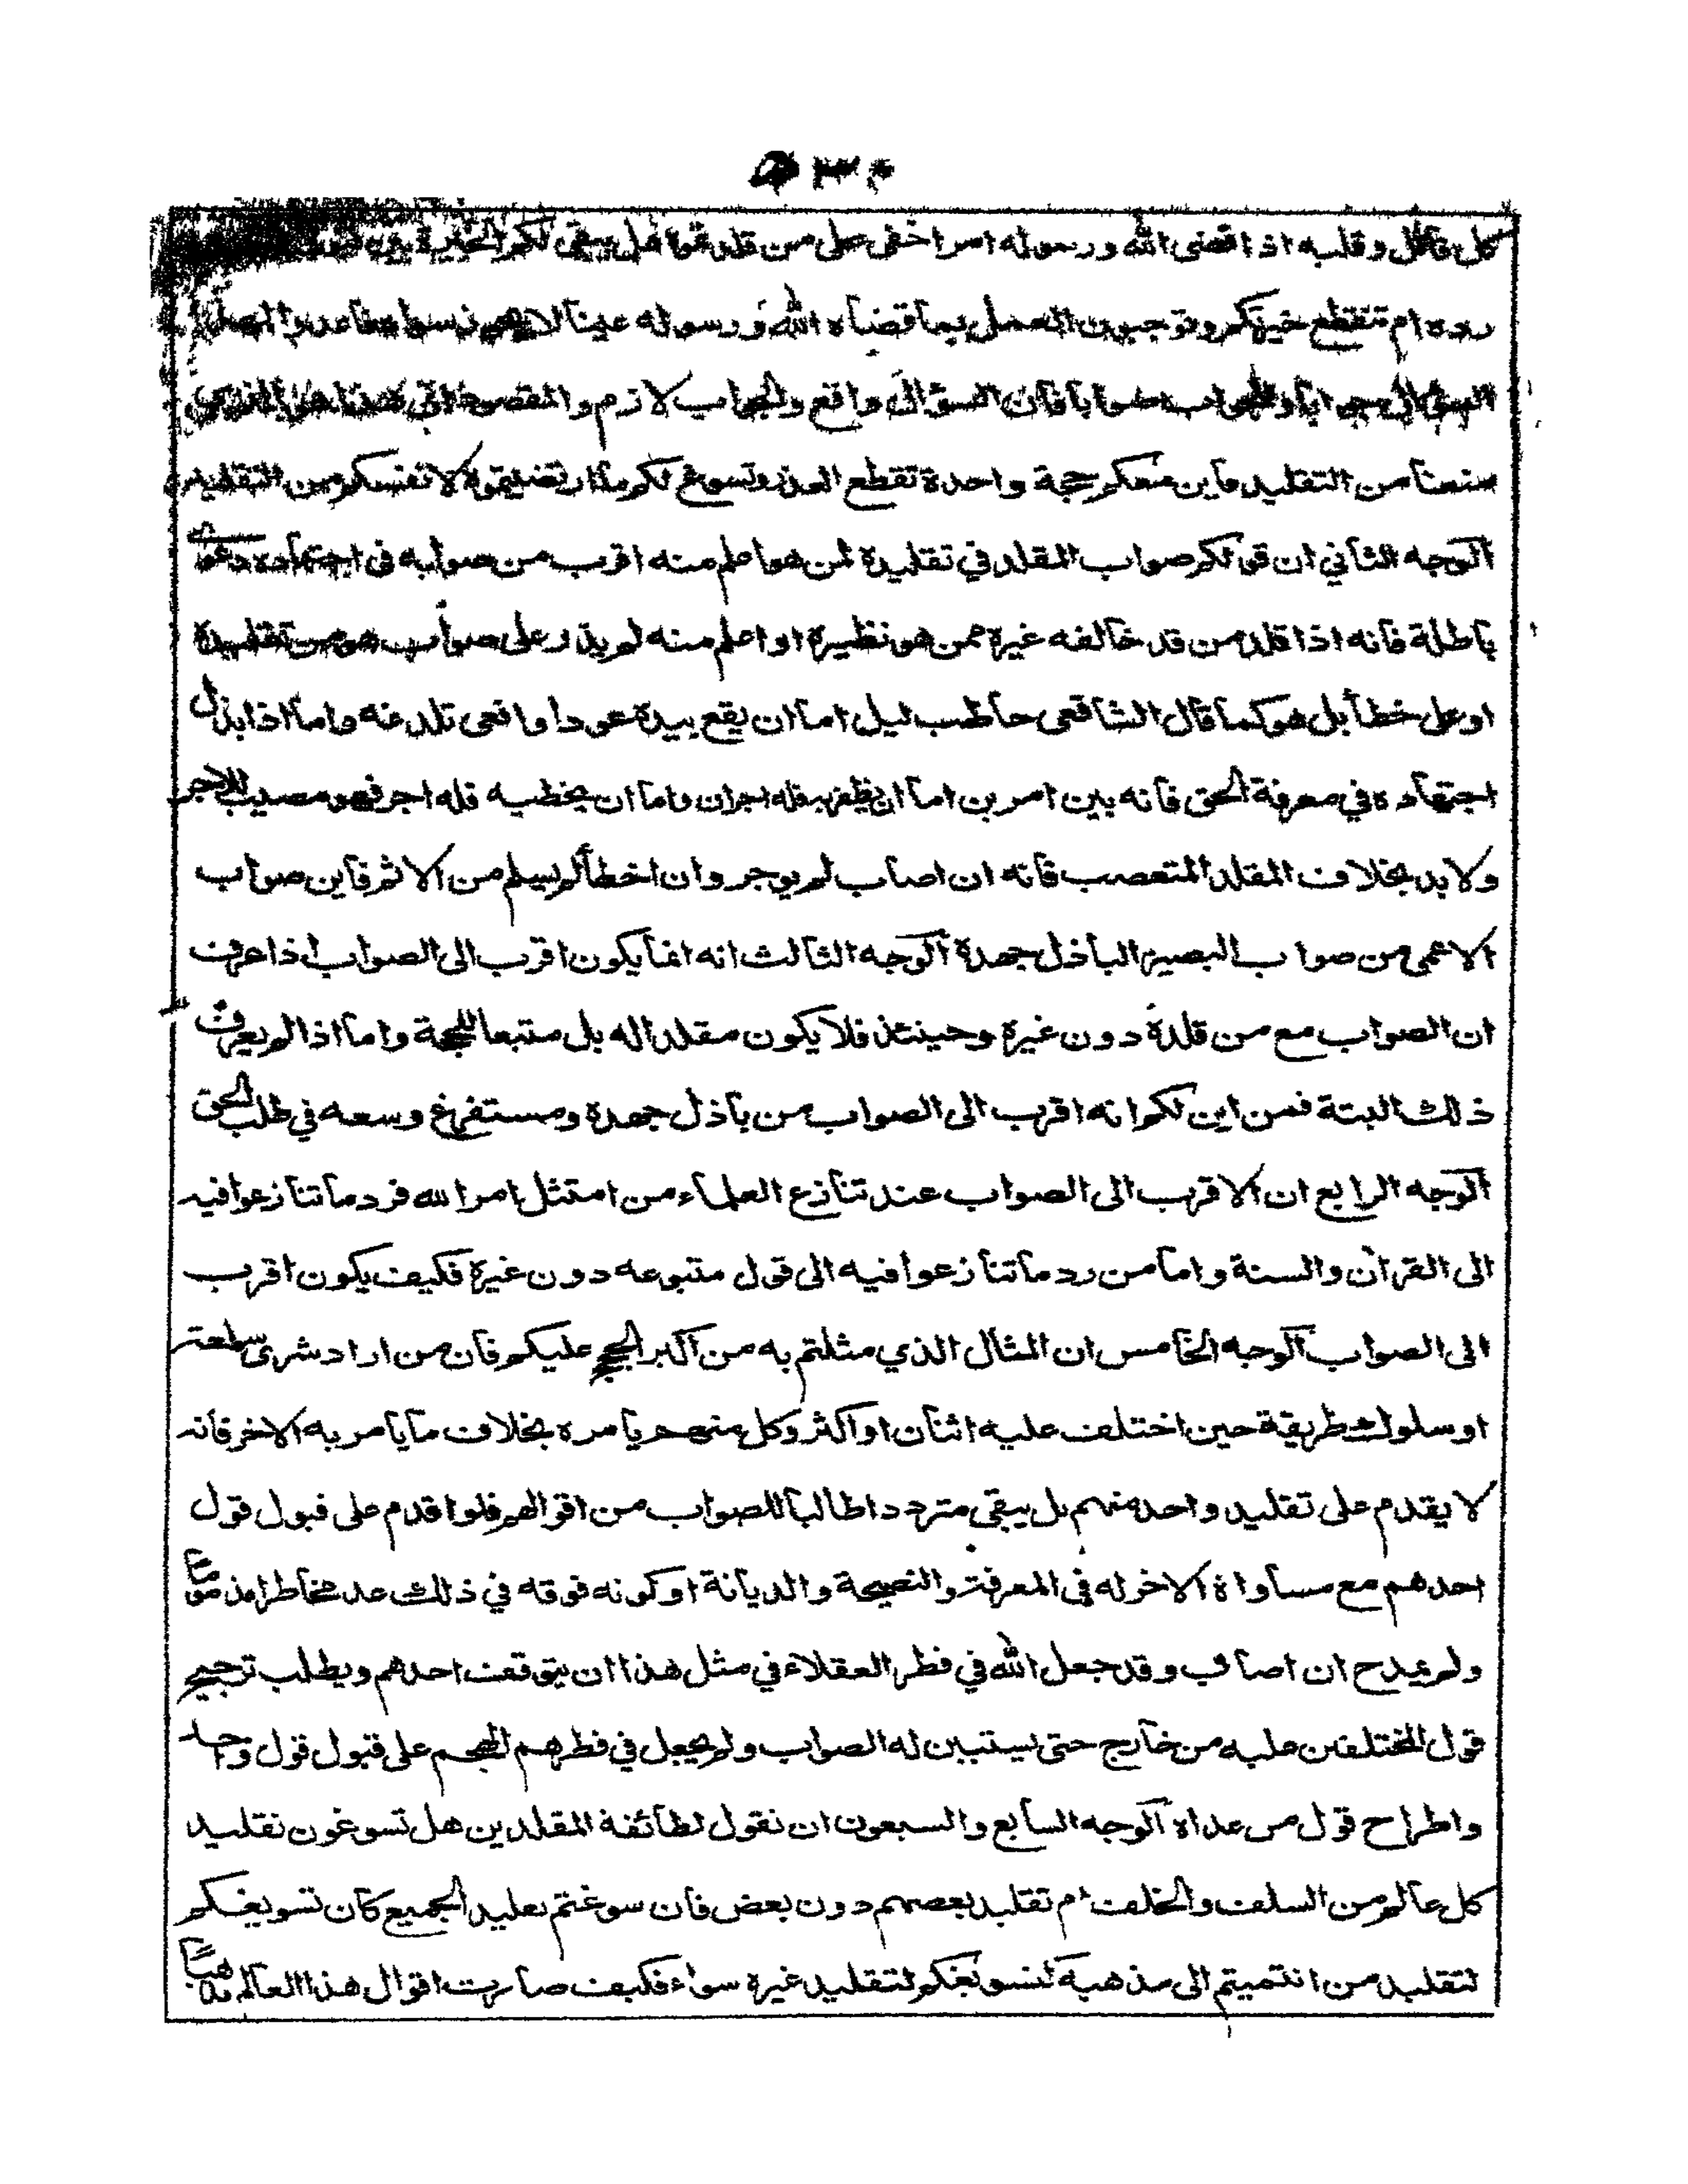 كل قائل وقلبه اذا قضى الله ورسوله امرا خفى على من قلدتموه هل يبقى لكم الخيرة بين
رده ام تنقطع خيرتكم وتوجبون العمل بما قضاه الله ورسوله عينا لا يجوز سواه فاعدوا لهذا
السؤال جوابا وللجواب صوابا فان السؤال واقع والجواب لازم والمقصود ان هذا هو الذى
منعنا من التقليد فاين معكم حجة واحدة تقطع العذر وتسوغ لكم ما ارتضيتموه لا نفسكم من التقليد
الوجه الثاني ان قولكم صواب المقلد في تقليده لمن هو اعلم منه اقرب من صوابه فى اجتهاده دعوى
باطلة فانه اذا قلد من قد خالفه غيره ممن هو نظيره او اعلم منه لم يدر على صواب هو من تقليده
او على خطأ بل هو كما قال الشافعى حاطب ليل اما ان يقع بيده عود او افعى تلدغه واما اذا بذل
اجتهاده في معرفة الحق فانه بين امرين اما ان يظفر به فله اجران واما ان يخطيه فله اجر فهو مصيب للاجر
ولا بد بخلاف المقلد المتعصب فانه ان اصاب لم يوجر وان اخطأ لم يسلم من الا ثم فاين صواب
الاعمى من صواب البصير الباذل جهده الوجه الثالث انه انما يكون اقرب الى الصواب اذا عرف
ان الصواب مع من قلده دون غيره وحينئذ فلا يكون مقلدا له بل متبعا للحجة واما اذا لم يعرف
ذلك البتة فمن اين لكم انه اقرب الى الصواب من باذل جهده ومستفرغ وسعه في طلب الحق
الوجه الرابع ان الاقرب الى الصواب عند تنازع العلماء من امتثل امر الله فرد ما تنازعوا فيه
الى القران والسنة واما من رد ما تنازعوا فيه الى قول متبوعه دون غيره فكيف يكون اقرب
الى الصواب الوجه الخامس ان المثال الذي مثلتم به من اكبر الحجج عليكم فان من اراد شرى سلعة
او سلوك طريقة حين اختلف عليه اثنان او اكثر وكل منهم يامره بخلاف ما يامر به الاخر فانه
لا يقدم على تقليد واحد منهم بل يبقى مترددا طالبا للصواب من اقوالهم فلو اقدم على قبول قول
احدهم مع مساواة الاخر له فى المعرفة والنصيحة والديانة او كونه فوقه في ذلك عد مخاطرا مذموما
ولم يمدح ان اصاب وقد جعل الله في فطر العقلاء في مثل هذا ان يتوقف احدهم ويطلب ترجيح
قول المختلفين عليه من خارج حتى يستبين له الصواب ولم يجعل في فطرهم الهجم على قبول قول واحد
واطراح قول من عداه الوجه السابع والسبعون ان نقول لطائفة المقلدين هل تسوغون تقليد
كل عالم من السلف والخلف ام تقليد بعضهم دون بعض فان سوغتم تقليد الجميع كان تسويغكم
لتقليد من انتميتم الى مذهبه كتسويغكم لتقليد غيره سواء فكيف صارت اقوال هذا العالم مذهبا